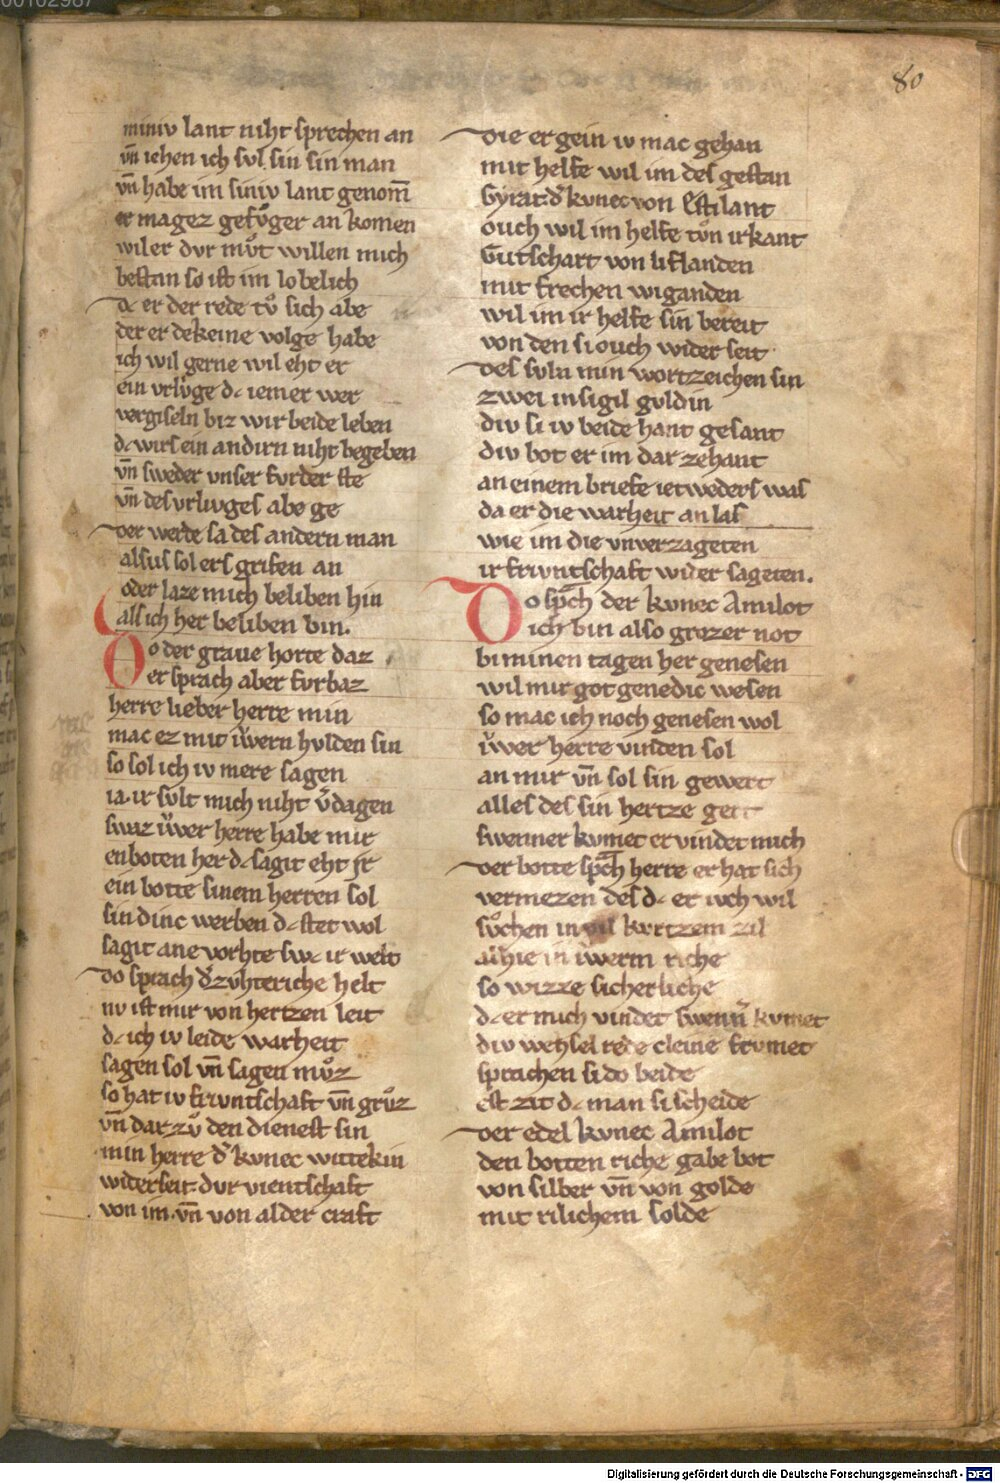 80
miniv lant niht sprechen an
vn̄ iehen ich svl sin sin man
vn̄ habe im siniv lant genom̄
er magez gefvͦger an komen
wil er dvr mvͦt willen mich
bestan so ist im lobelich
dc er der rede tvͦ sich abe
der er dekeine volge habe
ich wil gerne wil eht er
ein vrlvͦge dc iemer wer
vergiseln biz wir beide leben
dc wirs ein andirn niht begeben
vn̄ sweder vnser fvrder ste
vn̄ des vrlivges abe ge
der werde sa des andern man
alsus sol ers grifen an
oder laze mich beliben hin
als ich her beliben bin.
Do der graue horte daz
er sprach aber fvrbaz
herre lieber herre min
mac ez mit iͮwern hvlden sin
so sol ich iv mere sagen
ia ir svlt mich niht v̓dagen
swaz iͮwer herre habe mir
enboten her dc sagit eht ir
ein botte sinem herren sol
sin dinc werben dc stet wol
sagit ane vorhte swc ir welt
do sprach d̓ zvhteriche helt
nv ist mir von hertzen leit
dc ich iv leide warheit
sagen sol vn̄ sagen mvͦz
so hat iv frivntschaft vn̄ grvͦz
vn̄ dar zvͦ den dienest sin
min herre d̓ kvnec wittekin
widerseit dvr vientschaft
von im vn̄ von alder craft
die er gein iv mac gehan
mit helfe wil im des gestan
Gyrat d̓ kvnec von Estilant
ouch wil im helfe tvͦn irkant
Gutschart von liflanden
mit frechen wiganden
wil im ir helfe sin bereit
von den si ouch wider seit
des svln min wortzeichen sin
zwei insigil gvldin
div si iv beide hant gesant
div bot er im dar zehant
an einem briefe ietweders was
da er die warheit an las
wie im die vnverzageten
ir frivntschaft wider sageten.
Do sp̄ch der kvnec Amilot
ich bin also grozer not
bi minen tagen her genesen
wil mir got genedic wesen
so mac ich noch genesen wol
iͮwer herre vinden sol
an mir vn̄ sol sin gewert
alles des sin hertze gert
swenner kvmet er vindet mich
der botte sp̄ch herre er hat sich
vermezen des dc er ivch wil
svͦchen in vil kvrtzem zil
alhie in iͮwerm riche
so wizze sicherliche
dc er mich vindet swenn̓ kvmet
div wehsel rede cleine frvmet
sprachen si do beide
est zit dc man si scheide
der edel kvnec Amilot
den botten riche gabe bot
von silber vn̄ von golde
mit rilichem solde
Digitalisierung gefördert durch die Deutsche Forschungsgemeinschaft - DFG